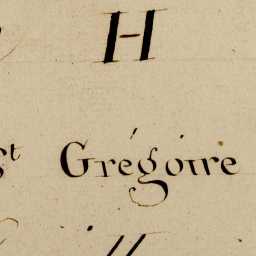 H
st Grégoire